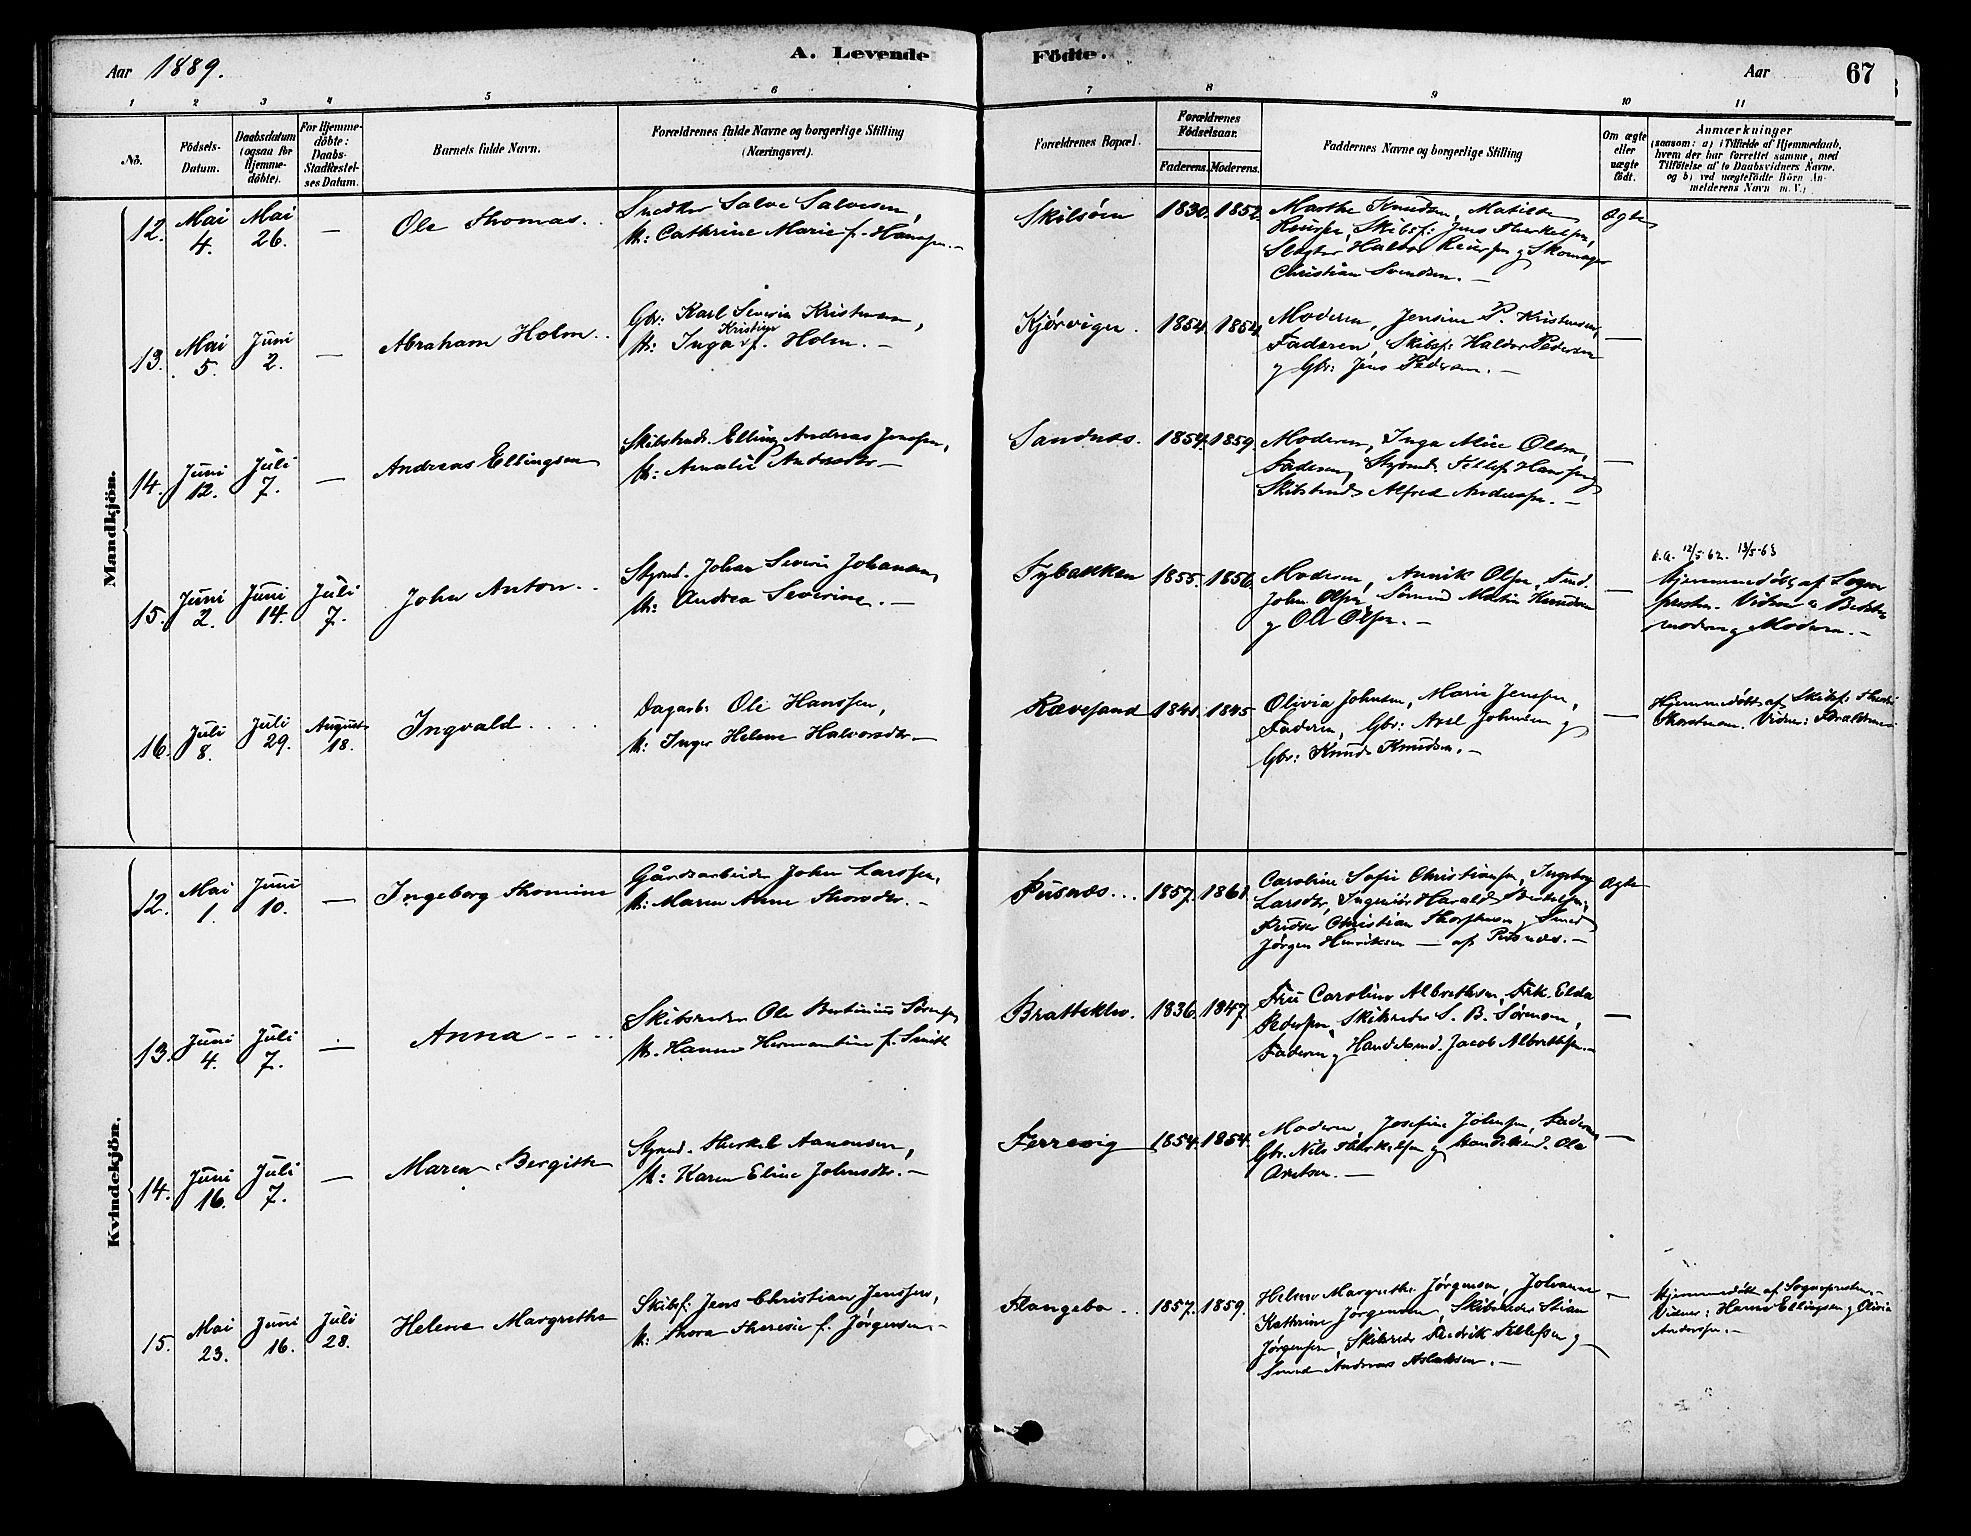 Aar 1889.
A. Levende
Födte.
Aar
67
1
2
3
4
5
6
7
8
9
10
11
No.
Födsels-
Datum.
Daabsdatum
(ogsaa for
Hjemme-
döbte).
For Hjemme-
döbte:
Daabs-
Stadfæstel-
ses Datum.
Barnets fulde Navn.
Forældrenes fulde Navne og borgerlige Stilling
(Næringsvei).
Forældrenes Bopæl.
Forældrenes
Födselsaar.
Faderens.
Moderens.
Faddernes Navne og borgerlige Stilling
Om ægte
eller
uægte
födt.
Anmærkninger
(saasom: a) i Tilfælde af Hjemmedaab,
hvem der har forrettet samme, med
Tilföielse af to Daabsvidners Navne,
og b) ved uægtefödte Börn An-
melderens Navn m. V.)
Mandkjön.
12.
Mai
4.
Mai
26.
—
Ole Thomas.
Snedker Salve Salvesen,
H: Cathrine Marie f. Hanssen. —
Skilsöen
1830.
1852.
Marthe Knudsen, Matilde
Skibsf: Jens Therkelsen,
Skomager
Christian Svendsen. —
Ægte
13.
Mai
5.
Juni
2.
—
Abraham Holm.
Gbr: Karl Severin Kristensen,
Kristine
H: Inga f. Holm. —
Kjörvigen.
1854.
1854.
Moderen, Jensine P. Kristensen,
Faderen, Skibsf: Halvor Pedersen
og Gbr: Jens Pedersen. —
—
14.
Juni
12.
Juli
7.
—
Andreas Ellingsen
Elling Andreas Jenssen,
H: Amalie Andersdtr —
Sandnes.
1854.
1859.
Moderen, Inga Olsen,
Faderen, Styrmd. Tellef Hanssen og
Alfred Anderssen. —
—
15.
Juni
2.
Juni
14.
Juli
7.
John Anton.
Styrmd. Johan Severin Johansen,
H: Andrea Severine. —
Tybakken
1855.
1856.
Moderen, Annik Olsen,
John Olsen, Martin Knudsen
og Ole Olsen. —
—
12/5-62. 13/5-63
Hjemmedöbt af Sogne-
presten. Vidner:
moder og Moderen. —
16.
Juli
8.
Juli
29.
August
18.
Ingvald
Dagarb: Ole Hanssen,
H: Inger Helene Halvorsdtr. —
Rævesand
1841.
1845.
Olivia Johnsen, Marie Jenssen,
Faderen, Gbr: Axel Johnsen og
Gbr: Knud Knudsen. —
—
Hjemmedöbt af Skibsf:
Vidner: Forældrene
Kvindekjön.
12.
Mai
1.
Juni
10.
—
Ingeborg Thomine
Gårdsarbeider John Larssen,
H: Maren Anne Thorsdtr. —
Pusnæs.
1857.
1861.
Caroline Sofie Christiansen, Ingeborg
Larsdtr, Ingeniör Harald
Christian Smed
Jörgen Henriksen — af Pusnæs. —
Ægte
13.
Juni
4.
Juli
7.
—
Anna
Skibsreder Ole Bertinius Sörensen
H. Hanna Hermandine f. Smith
Bratteklev.
1836.
1847.
Fru Caroline Albrethsen, Frk. Elda
Pederssen, Skibsreder S. B. Sörensen,
Faderen og Handelsmd. Jacob Albrethsen. —
—
14.
Juni
16.
Juli
7.
—
Maren Bergithe
Styrmd. Therkel Aanensen,
H: Karen Eline Johnsdtr. —
Færrevig
1854.
1854.
Moderen, Josefine Johnsen, Faderen
Gbr. Nils Therkelsen og Handelsmd. Ole
—
15.
Mai
23.
Juni
16.
Juli
28.
Helene Margrethe
Skibsf: Jens Christian Jenssen,
H: Thora Theresie f. Jörgensen. —
Flangebo
1857.
1859.
Helene Margrethe Jörgensen, Johanne
Kathrine Jörgensen, Skibsreder Stian
Jörgensen, Skibsreder Fredrik Tellefsen og
Smed Andreas Aslaksen. —
—
Hjemmedöbt af Sognepresten. —
Vidner: Hanne Ellingsen og Olivia
Anderssen. —